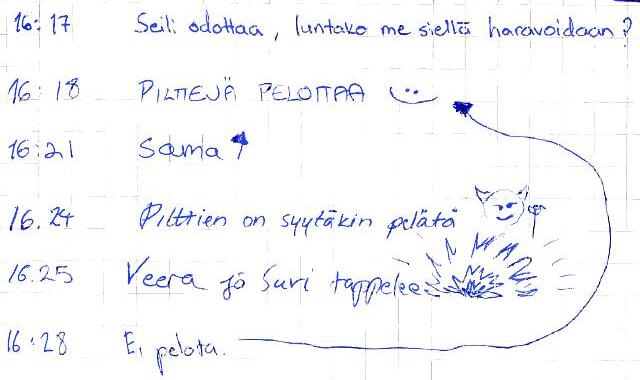 16:17 Seili odottaa, luntako me siellä haravoidaan?
16:18 PILTTEJÄ PELOTTAA
16:21 Sama
16.24 Pilttien on syytäkin pelätä
16.25 Veera ja Suvi tappelee
16:28 Ei pelota.